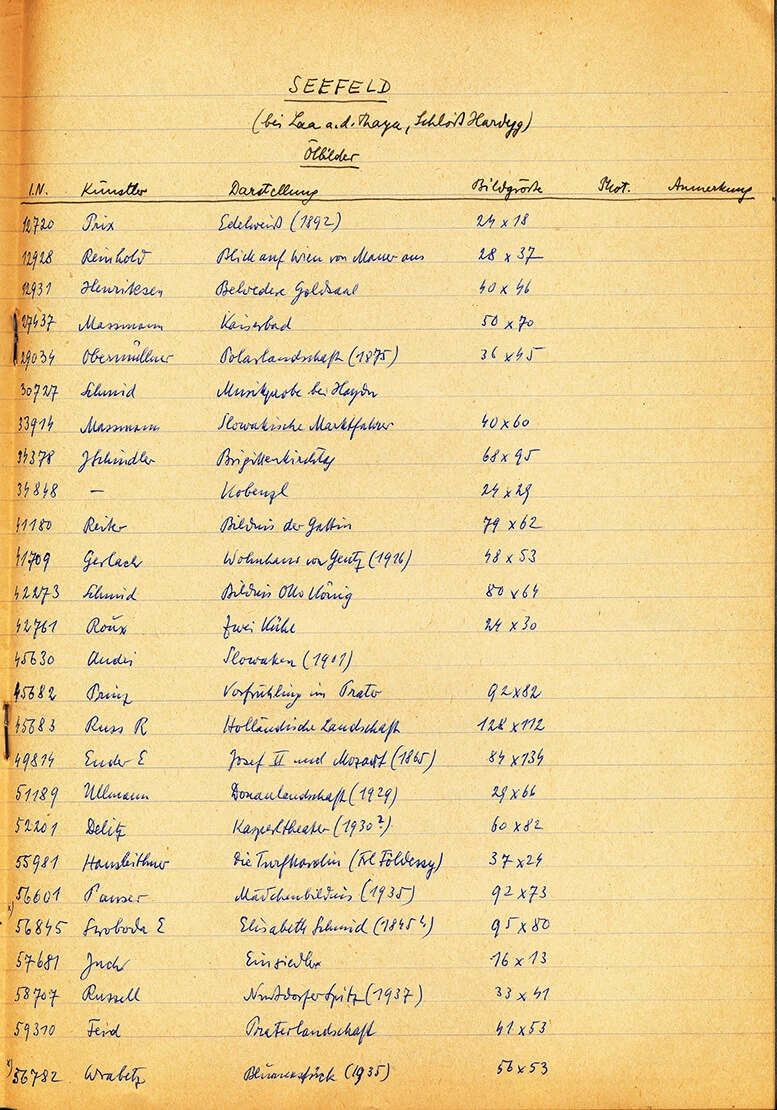 SEEFELD
(bei Laa a.d. Thaya, Schloß Hardegg)
Ölbilder
I.N. Künstler Darstellung Bildgröße Phot. Anmerkung
12720 Prix Edelweiß (1892) 24 x 18
12928 Reinhold Blick auf Wien von Mauer aus 28 x 37
12931 Henriksen Belvedere Goldsaal 40 x 46
27437 Massmann Kaiserbad 50 x 70
29034 Obermüllner Polarlandschaft (1875) 36 x 45
30727 Schmid Musikprobe bei Haydn
33914 Massmann Slowakische Marktfahrer 40 x 60
34378 J Schindler Brigittenkirchtag 68 x 95
34848 — Kobenzl 24 x 29
41180 Reiter Bildnis der Gattin 79 x 62
41709 Gerlach Wohnhaus von Gentz (1916) 48 x 53
42273 Schmid Bildnis Otto König 80 x 64
42761 Roux Zwei Kühe 24 x 30
45630 Andri Slowaken (1901)
45682 Prinz Vorfrühling im Prater 92 x 82
45683 Russ R Holländische Landschaft 128 x 112
49814 Ender E Josef II und Mozart (1865) 84 x 134
51189 Ullmann Donaulandschaft (1929) 29 x 66
52201 Delitz Kasperltheater (1930?) 60 x 82
55981 Hansleithner Die Turfkarolin (Frl Földessy) 37 x 24
x) 56601 Pauser Mädchenbildnis (1935) 92 x 73
56845 Swoboda E Elisabeth Schmid (1845?) 95 x 80
57681 Juch Einsiedler 16 x 13
58707 Russell Nußdorfer Spitz (1937) 33 x 41
59310 Feid Praterlandschaft 41 x 53
x) 56782 Wrabetz Blumenstück (1935) 56 x 53